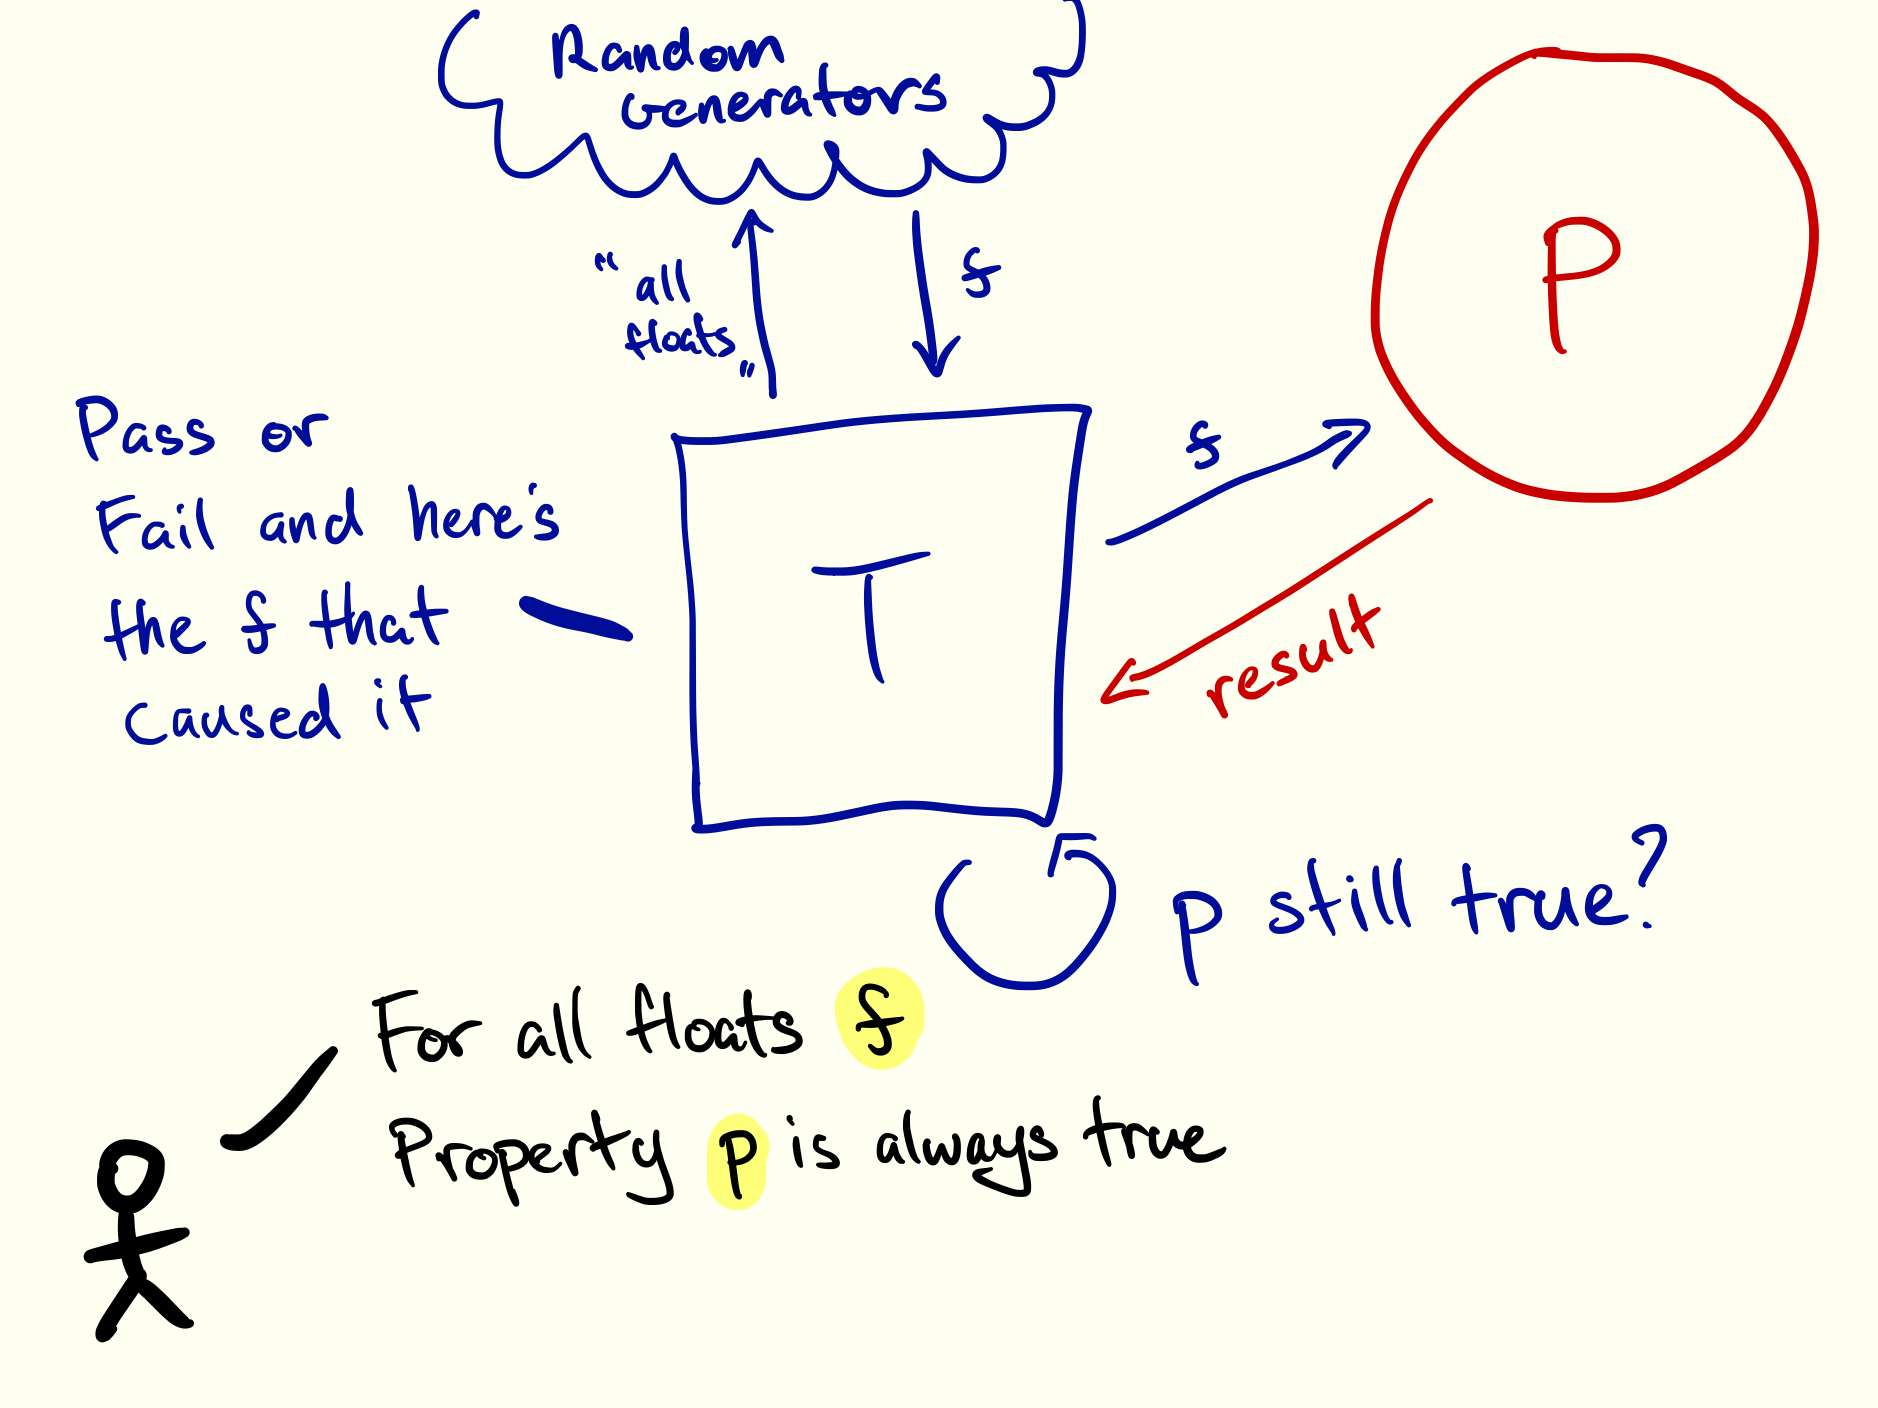 Random
Generators
"all
floats"
f
P
Pass or
Fail and here's
the f that
caused it
f
T
result
p still true?
For all floats f
Property p is always true